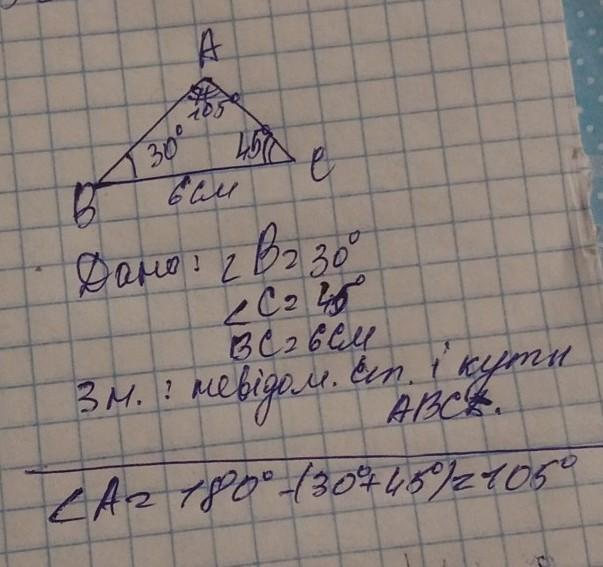 A
105°
30°
45°
B
C
6см
Дано: ∠B=30°
∠C=45°
BC=6см
Зн.: невідом. ст. і кути
ABC.
∠A= 180°-(30°+45°)=105°